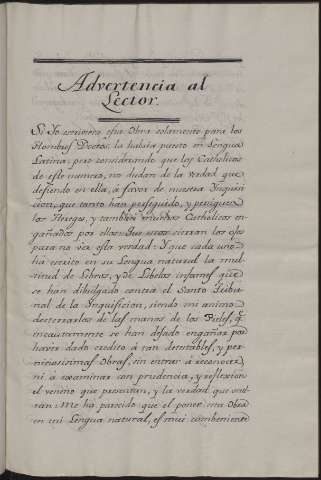 Advertencia al
Lector.
Si Yo escriviera esta Obra solamente para los
Hombres Doctos, la habia puesto en Lengua
Latina; pero considerando que los Catholicos
de este numero, no dudan de la verdad que
defiendo en ella, à favor de nuestra Inquisi
cion, que tanto han perseguido, y persiguen
los Hereges, y tambien muchos Catholicos en
gañados por ellos: que unos cierran los ojos
para no ver esta verdad: Y que cada uno
há escrito en su Lengua natural la mul
titud de Libros, y de Libelos infames que
se han dibulgado contra el Santo Tribu
nal de la Inquisicion, siendo mi animo
desterrarlos de las manos de los Fieles, q.e
incautamente se han dejado engañar por
haver dado credito à tan detestables, y per
niciosisimas Obras, sin entrar à reconocer,
ni à examinar con prudencia, y reflexion
el veneno que presentan, y la verdad que ocul
tan: Me ha parecido que el poner esta Obra
en mi Lengua natural, es mui combeniente